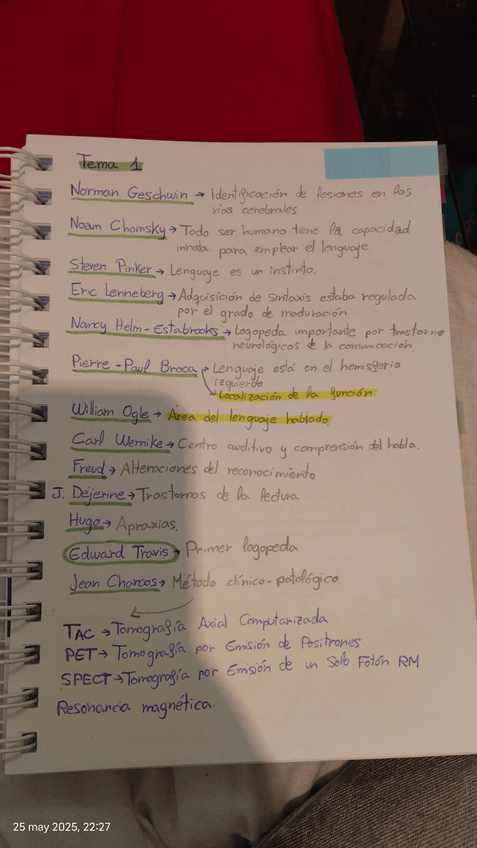 Tema 1
Norman Geschwin → Identificación de lesiones en las
vías cerebrales
Noam Chomsky → Todo ser humano tiene la capacidad
innata para emplear el lenguaje.
Steven Pinker → Lenguaje es un instinto.
Eric Lenneberg → Adquisición de sintaxis estaba regulada
por el grado de maduración.
Nancy Helm-Estabrooks → Logopeda importante por trastorno
neurológicos de la comunicación.
Pierre-Paul Broca → Lenguaje está en el hemisferio
izquierdo
Localización de la función
William Ogle → Área del lenguaje hablado
Carl Wernike → Centro auditivo y comprensión del habla.
Freud → Alteraciones del reconocimiento
J. Déjerine → Trastornos de la lectura
Hugo → Apraxias.
Edward Travis → Primer logopeda
Jean Charcos → Método clínico-patológico
TAC → Tomografía Axial Computarizada
PET → Tomografía por Emisión de Positrones
SPECT → Tomografía por Emisión de un Solo Fotón RM
Resonancia magnética.
25 may 2025, 22:27